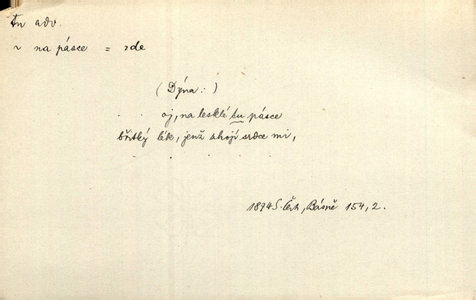 tu adv.
v na pásce = zde
(Dýna:)
. . oj, na lesklé tu pásce
břitký lék, jenž zhojí srdce mi,
1874 S. Čch, Básně 154, 2.